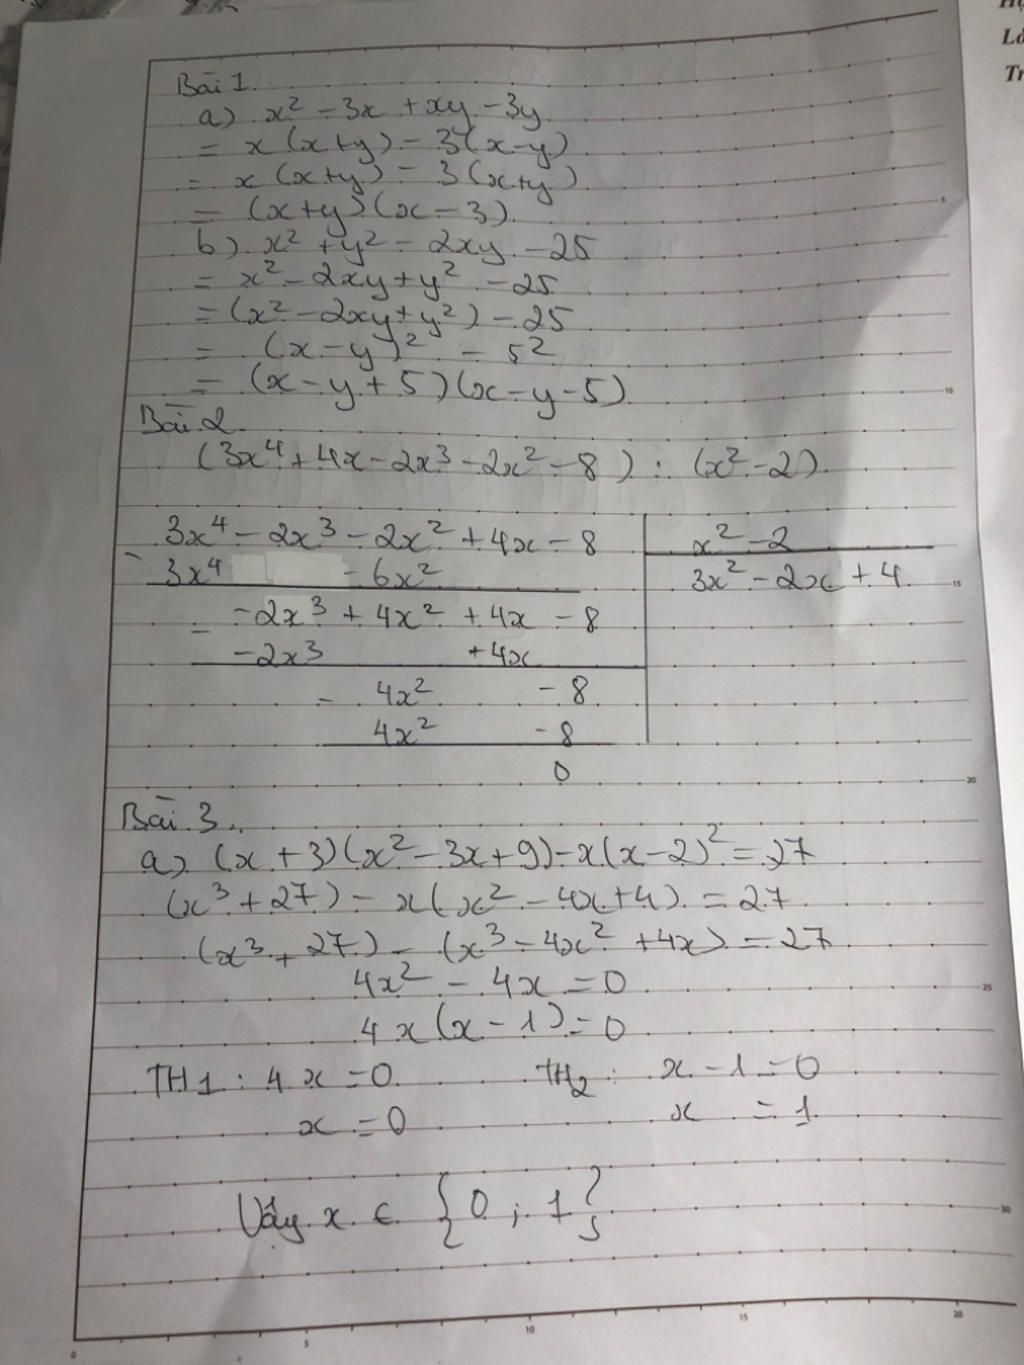 Lớ
Tr
Bài 1.
a) x² - 3x + xy - 3y
= x (x+y) - 3(x-y)
= x (x+y) - 3(x+y)
= (x+y)(x-3)
b) x² + y² - 2xy - 25
= x² - 2xy + y² - 25
= (x² - 2xy + y²) - 25
= (x - y)² - 5²
= (x - y + 5)(x - y - 5)
Bài 2
(3x⁴ + 4x - 2x³ - 2x² - 8) : (x² - 2)
3x⁴ - 2x³ - 2x² + 4x - 8 | x² - 2
- 3x⁴ - 6x² | 3x² - 2x + 4
- 2x³ + 4x² + 4x - 8
- -2x³ + 4x
4x² - 8
- 4x² - 8
0
Bài 3.
a) (x + 3)(x² - 3x + 9) - x(x - 2)² = 27
(x³ + 27) - x(x² - 4x + 4) = 27
(x³ + 27) - (x³ - 4x² + 4x) = 27
4x² - 4x = 0
4x(x - 1) = 0
TH1 : 4x = 0 TH2 : x - 1 = 0
x = 0 x = 1
Vậy x ∈ {0 ; 1}
5
10
15
20
25
30
0 5 10 15 20